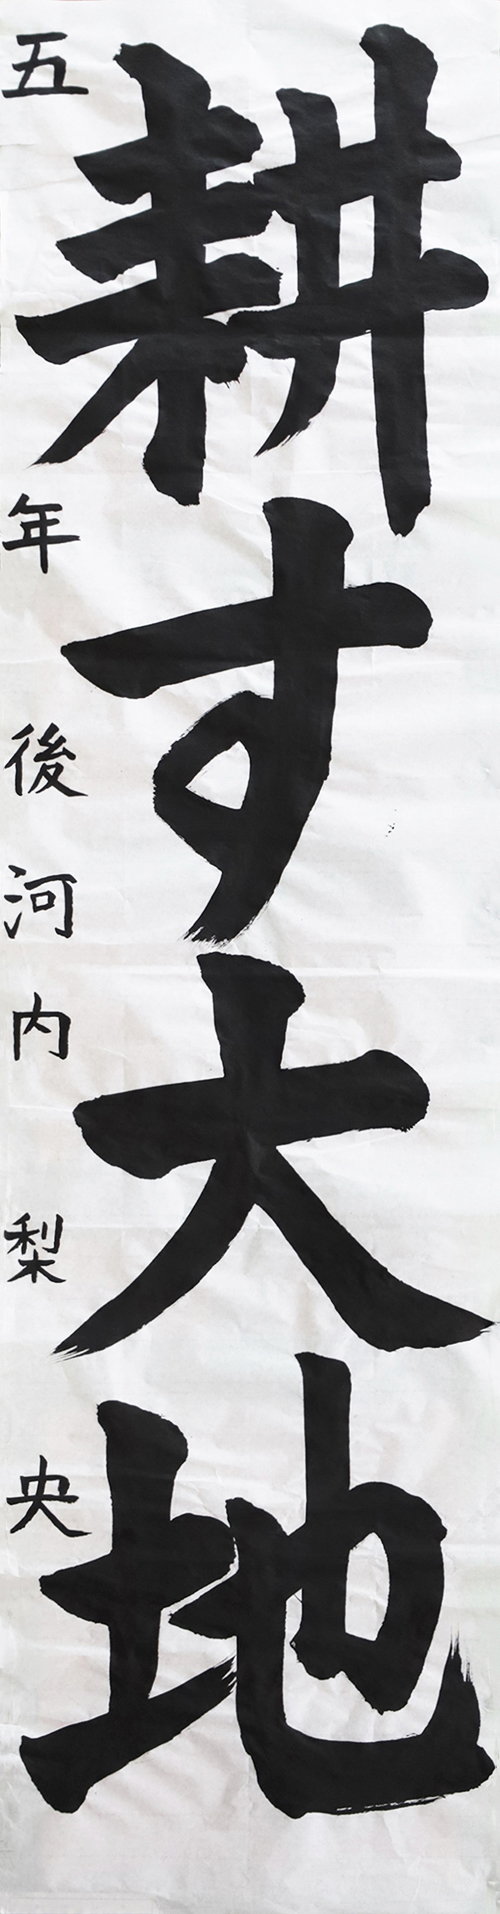 耕す大地
五年 後河内 梨央